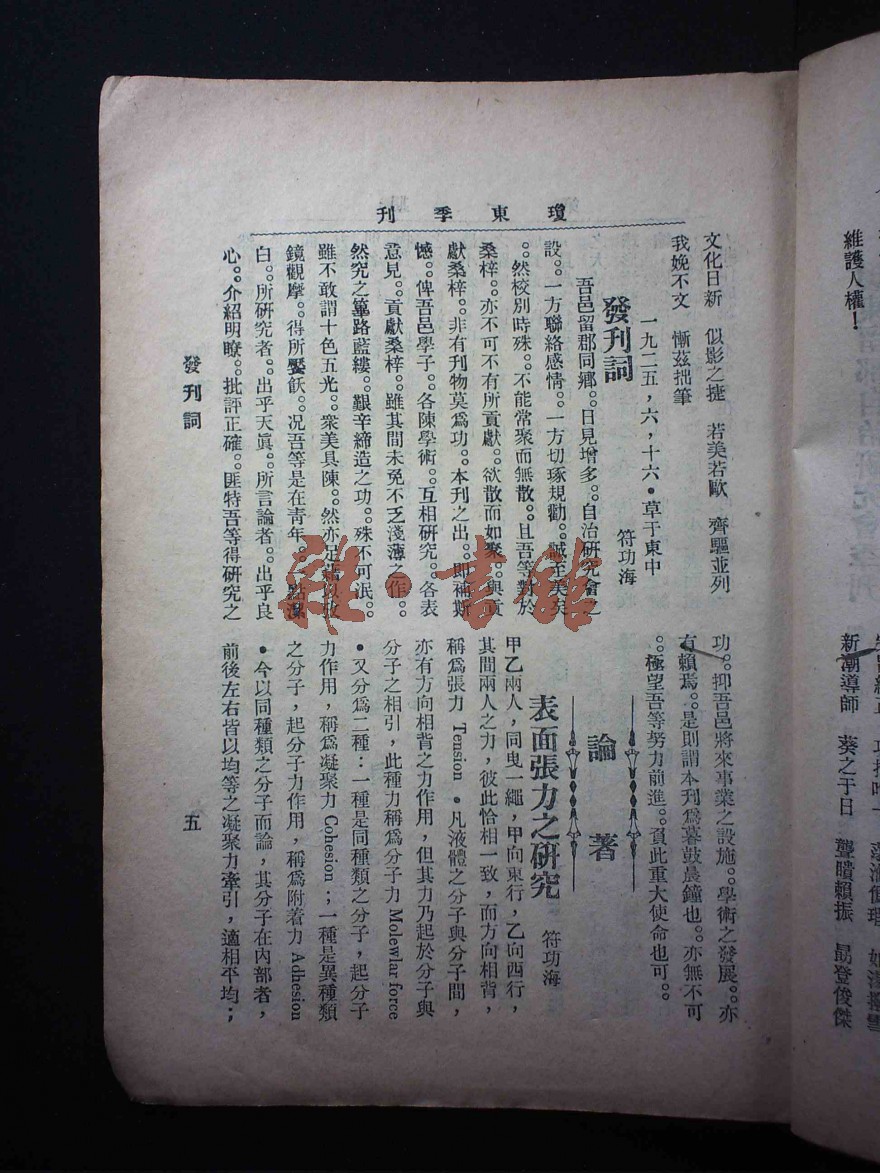 瓊東季刊
文化日新　似影之捷　若美若歐　齊驅並列
我娩不文　慚茲拙筆
一九二五，六，十六．草于東中
發刊詞
符功海
吾邑留郡同鄉。。日見增多。。自治研究會之
設。。一方聯絡感情。。一方切琢規勸。。誠至美矣
。。然校別時殊。。不能常聚而無散。。且吾等對於
桑梓。。亦不可不有所貢獻。。欲散而如聚。。與貢
獻桑梓。。非有刊物莫爲功。。本刊之出。。卽補斯
憾。。俾吾邑學子。。各陳學術。。互相研究。。各表
意見。。貢獻桑梓。。雖其間未免不乏淺薄之作。。
然究之篳路藍縷。。艱辛締造之功。。殊不可泯。。
雖不敢謂十色五光。。衆美具陳。。然亦足
鏡觀摩。。得所饜飫。。况吾等是在青年。。一點潔
白。。所研究者。。出乎天眞。。所言論者。。出乎良
心。。介紹明瞭。。批評正確。。匪特吾等得研究之
功。。抑吾邑將來事業之設施。。學術之發展。。亦
有賴焉。。是則謂本刊爲暮鼓晨鐘也。。亦無不可
。。極望吾等努力前進。。負此重大使命也可。。
論著
表面張力之研究
符功海
甲乙兩人，同曳一繩，甲向東行，乙向西行，
其間兩人之力，彼此恰相一致，而方向相背，
稱爲張力 Tension．凡液體之分子與分子間，
亦有方向相背之力作用，但其力乃起於分子與
分子之相引，此種力稱爲分子力 Molewlar force
．又分爲二種：一種是同種類之分子，起分子
力作用，稱爲凝聚力 Cohesion；一種是異種類
之分子，起分子力作用，稱爲附着力 Adhesion
．今以同種類之分子而論，其分子在內部者，
前後左右皆以均等之凝聚力牽引，適相平均；
發刊詞
五
維護人權！
新潮導師　葵之于日　聾聵賴振　勗登俊傑
雜·書館